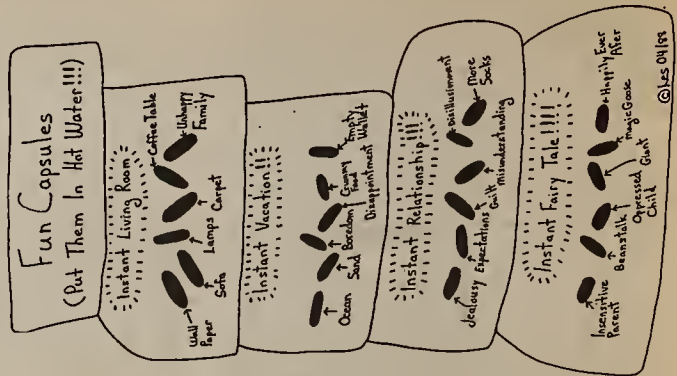 Fun Capsules
(Put Them In Hot Water!!!)
Instant Living Room
Wall
Paper
Sofa
Lamps
Carpet
Coffee Table
Unhappy
Family
Instant Vacation!!!
Ocean
Sand
Boredom
Crummy
Food
Disappointment
Empty
Wallet
Instant Relationship!!!
Jealousy
Expectations
Guilt
Misunderstanding
Disillusionment
More
Socks
Instant Fairy Tale!!!!
Insensitive
Parent
Beanstalk
Oppressed
Child
Giant
Magic Goose
Happily Ever
After
©Les 04/88